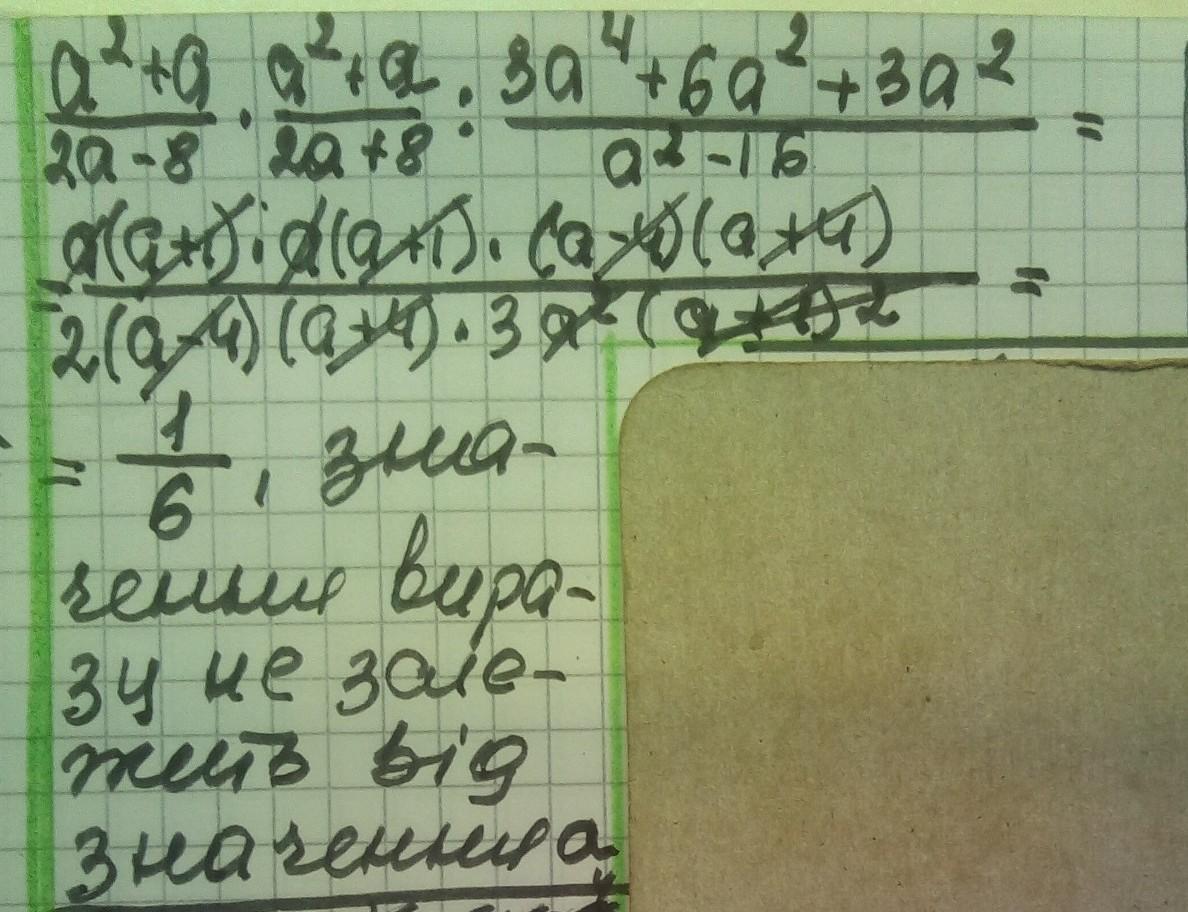 a²+a/2a-8 · a²+a/2a+8 : 3a⁴+6a²+3a²/a²-16 =
= a(a+1)·a(a+1)·(a-4)(a+4)/2(a-4)(a+4)·3a²(a+1)2 =
= 1/6, зна-
чення вира-
зу не зале-
жить від
значення a